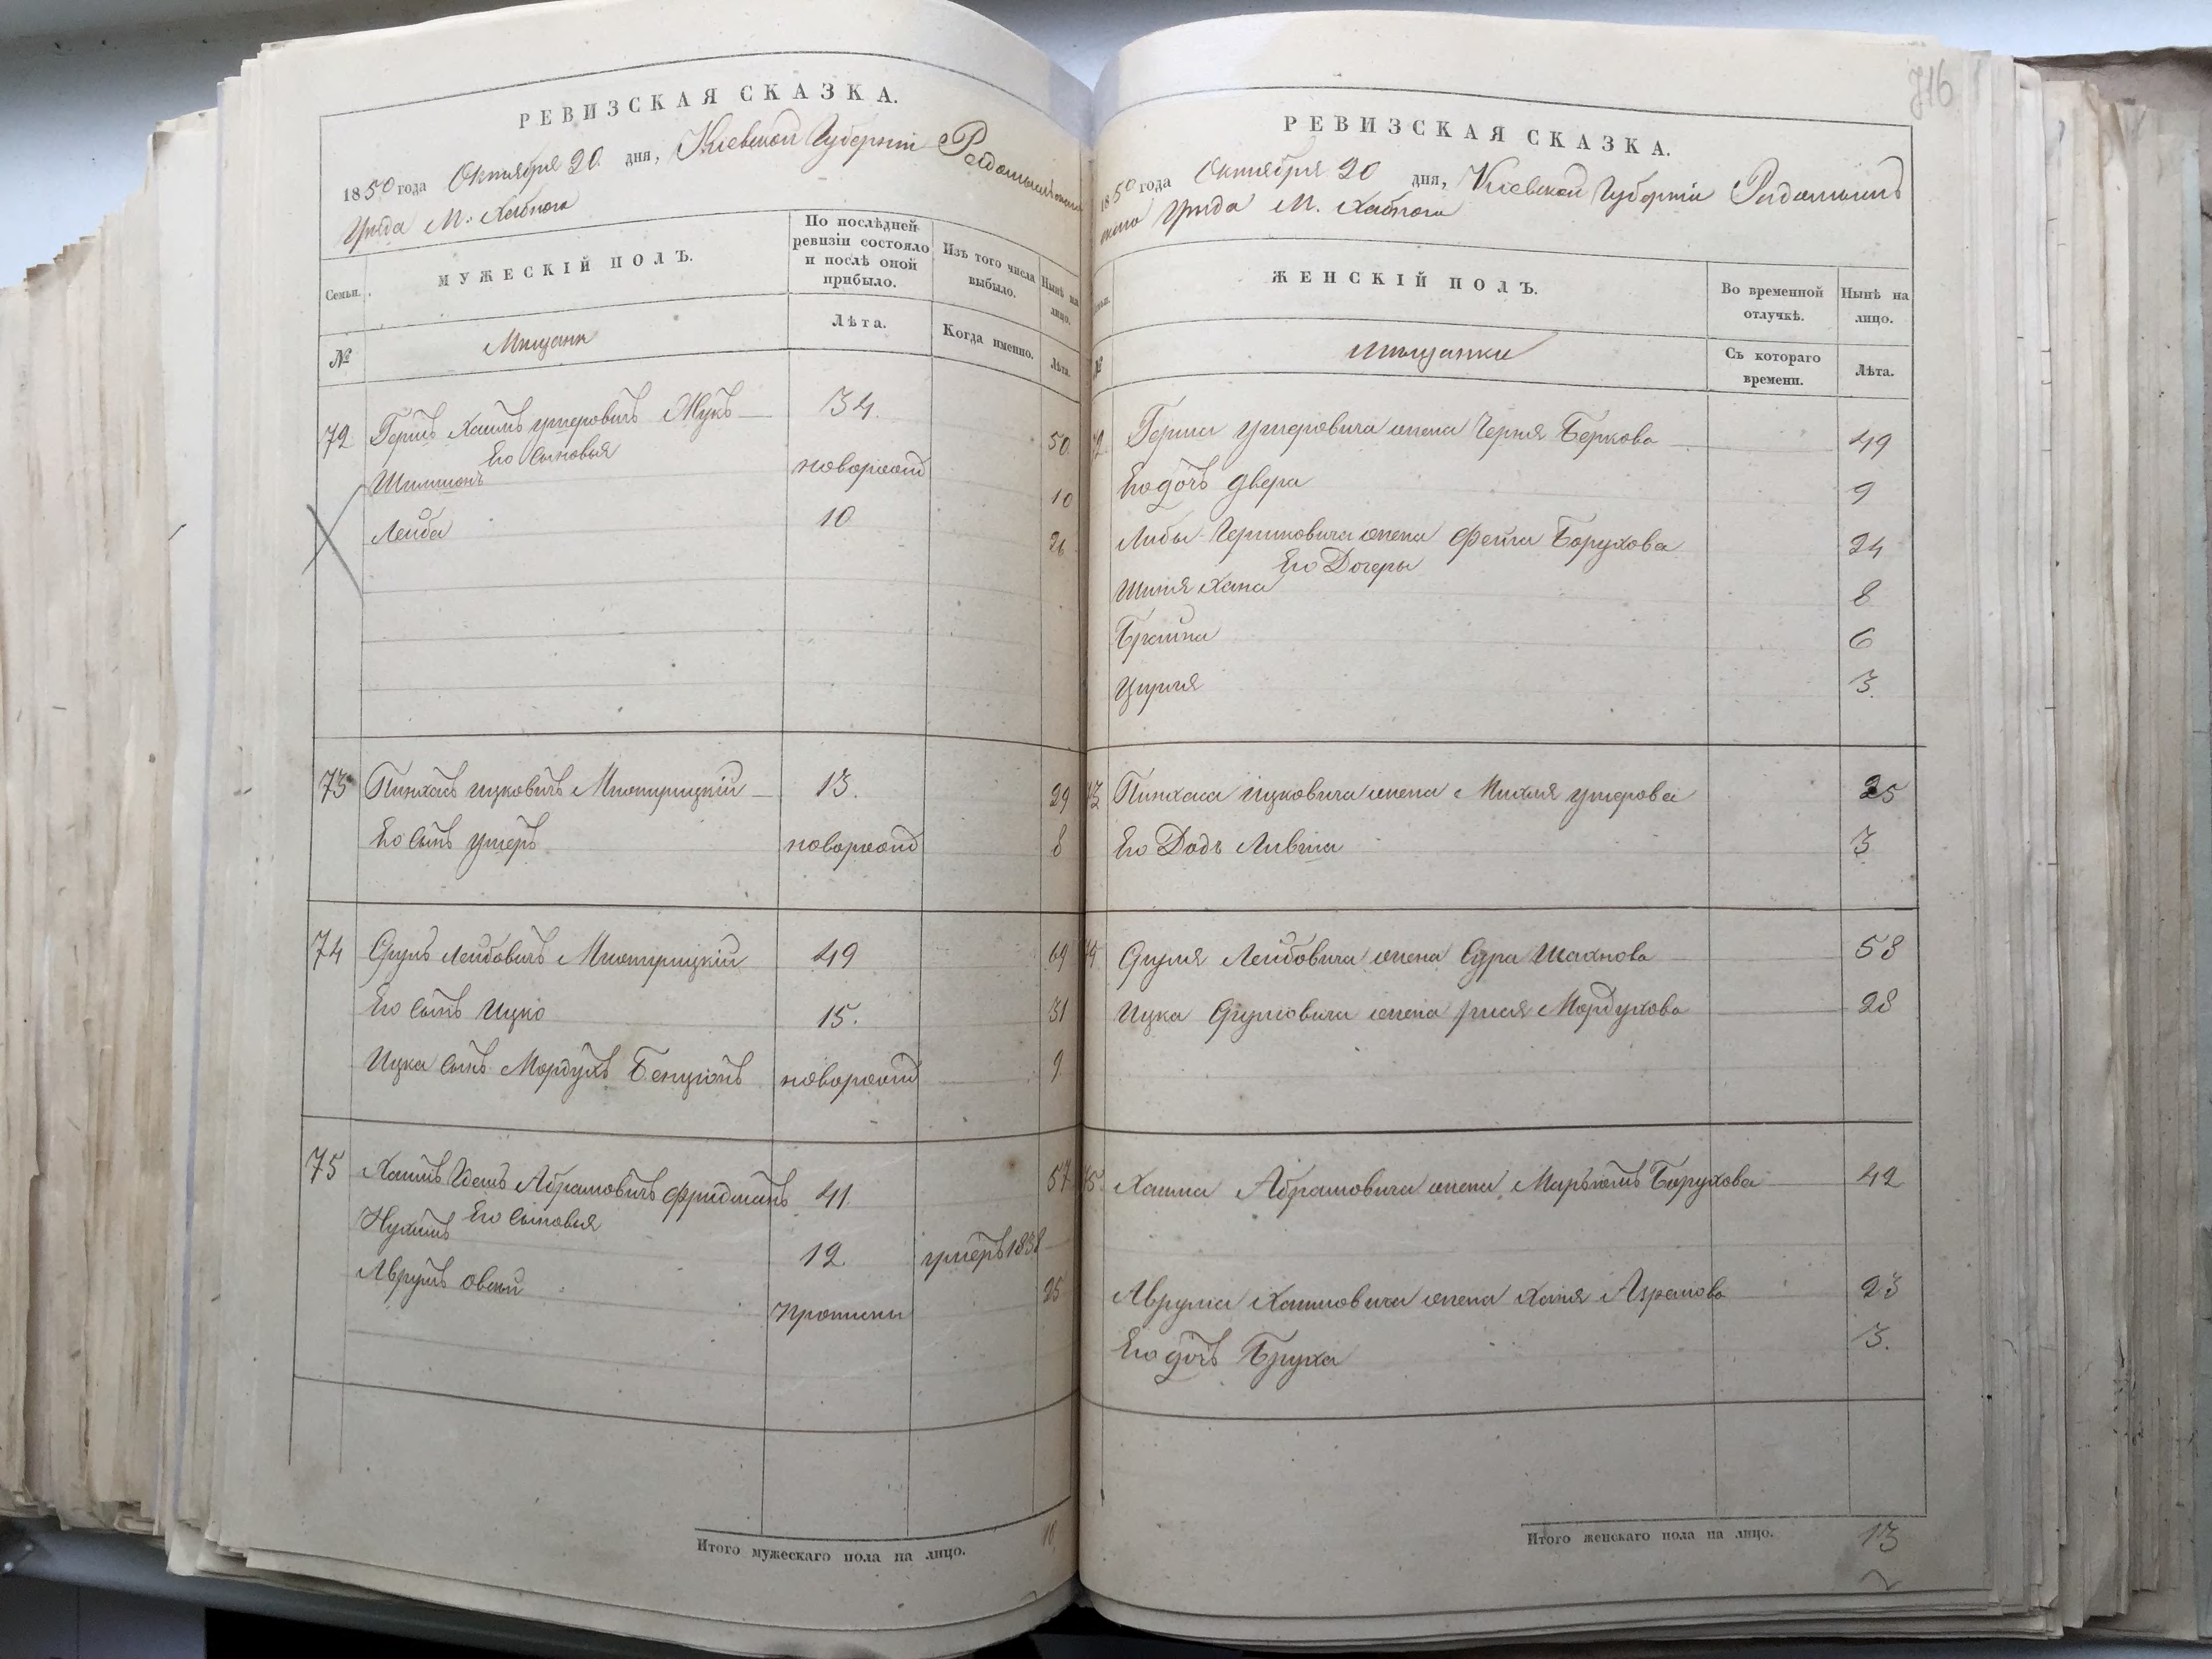 РЕВИЗСКАЯ СКАЗКА.
1850 года Октября 20 дня, Киевской Губерніи Радомысльскаго
Уезда М. Хабнога
Семьи.
МУЖЕСКІЙ ПОЛЪ.
По послѣдней ревизіи состояло и послѣ оной прибыло.
Изъ того числа выбыло.
Нынѣ на лицо.
№
Мещане
Лѣта.
Когда именно.
Лѣта.
72 Гершъ Хаимъ Умеровичъ Жукъ 34. 50
Его Сыновья
Шимшонъ новорожд 10
Лейба 10 26
73 Пинхасъ Ицковичъ Мнотрицкій 13. 29
Его Сынъ Умеръ новорожд 8
74 Сруль Лейбовичъ Мнотрицкій 49 69
Его Сынъ Ицко 15. 31
Ицка Сынъ Мордухъ Бенціонъ новорожд 9
75 Хаимъ Абрамовичъ Фридманъ 41. 57
Его Сыновья
Нухимъ 12 умеръ 1838
Аврумъ Овсей 25
Итого мужескаго пола на лицо. 10
716
РЕВИЗСКАЯ СКАЗКА.
1850 года Октября 20 дня, Киевской Губерніи Радомысль
скаго Уезда М. Хабнога
ЖЕНСКІЙ ПОЛЪ.
Во временной отлучкѣ.
Нынѣ на лицо.
№
Мещанки
Съ котораго времени.
Лѣта.
72 Герша Умеровича жена Черня Беркова 49
Его дочь Двера 9
Лейбы Гершковича жена Фейга Борухова 24
Его Дочеры
Шиня Хана 8
Брайна 6
Цирля 3.
73 Пинхаса Ицковича жена Михля Умерова 25
Его Дочь Лившa 3
74 Сруля Лейбовича жена Сура Шахнова 58
Ицка Срулевича жена Мордухова 28
75 Хаима Абрамовича жена Марьямъ Борухова 42
Аврума Хаимовича жена Ханя 23
Его дочь Бруха 3.
Итого женскаго пола на лицо. 13